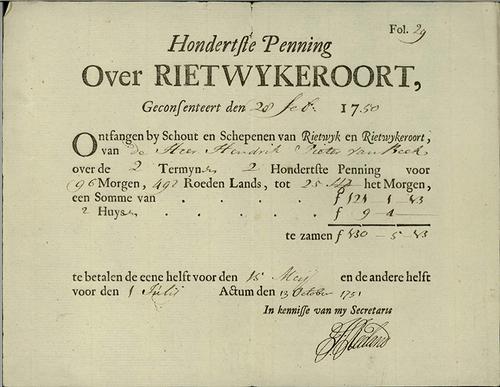 Fol. 29
Hondertste Penning
Over RIETWYKEROORT,
Geconsenteert den 28 feb: 1750
Ontfangen by Schout en Schepenen van Rietwyk en Rietwykeroort,
van De Heer Hendrik Pieter van Beek
over de 2 Termyn 2 Hondertste Penning voor
96 Morgen, 492 Roeden Lands, tot 25 het Morgen,
een Somme van . . . . . f 121
2 Huys . . . . . f 9
te zamen f 5
te betalen de eene helft voor den 15 Meij en de andere helft
voor den 1 Julij Actum den 13 October 1751
In kennisse van my Secretaris